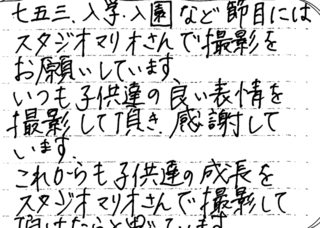 七五三、入学、入園など節目には
スタジオマリオさんで撮影を
お願いしています。
いつも子供達の良い表情を
撮影して頂き、感謝して
います。
これからも子供達の成長を
スタジオマリオさんで撮影して
頂けたらと思っています